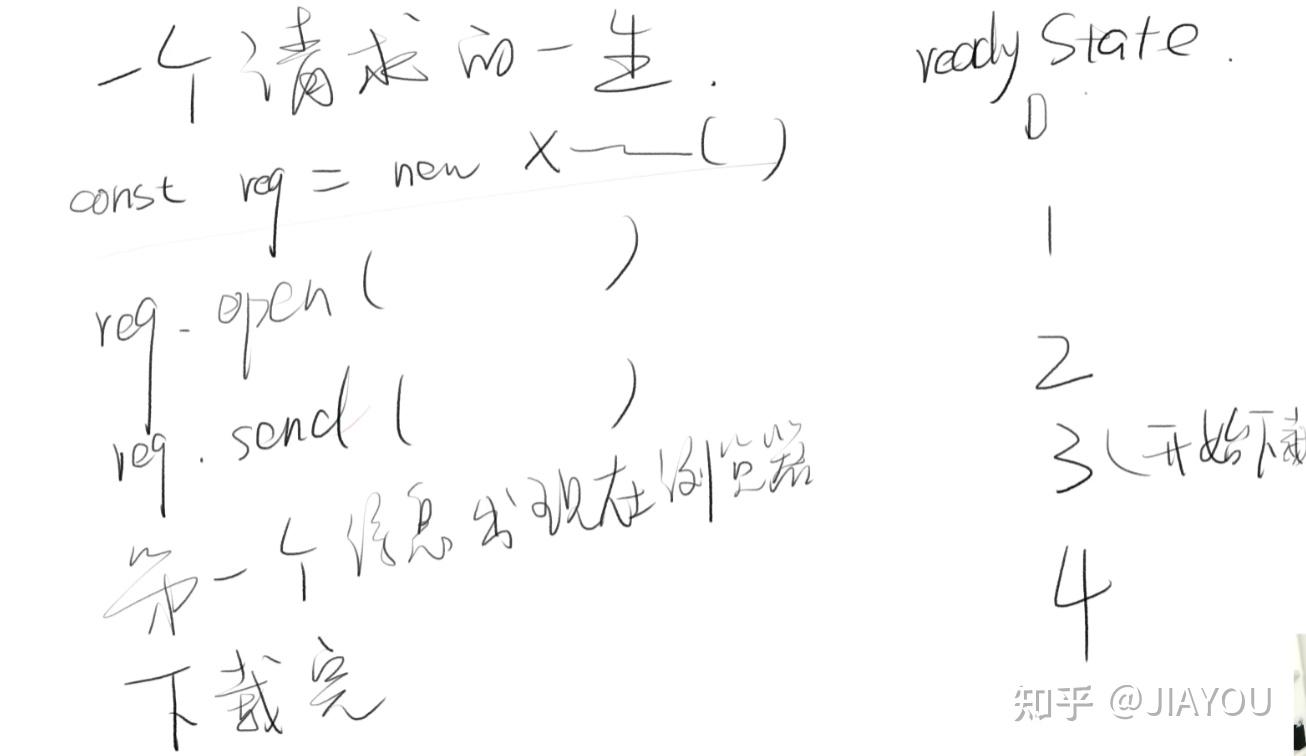 一个请求的一生. readyState.
const req = new X——( ) 0
req.open( ) 1
req.send( ) 2
第一个信息出现在浏览器 3(开始下载
下载完 4
知乎 @JIAYOU